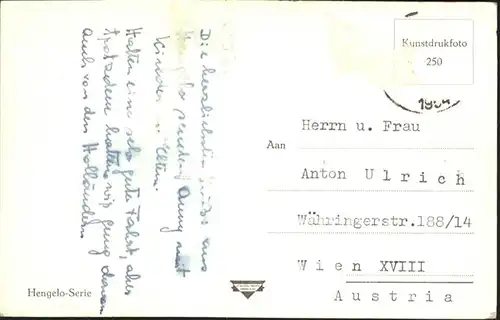 Die herzlichsten Grüße aus
Hengelo senden Anny mit
Kinder u. Eltern.
Hatten eine sehr gute Fahrt, aber
trotzdem hatten wir genug davon
auch von den Holländern.
Kunstdrukfoto
250
Herrn u. Frau
Aan
Anton Ulrich
Währingerstr.188/14
Wien XVIII
Austria
Hengelo-Serie